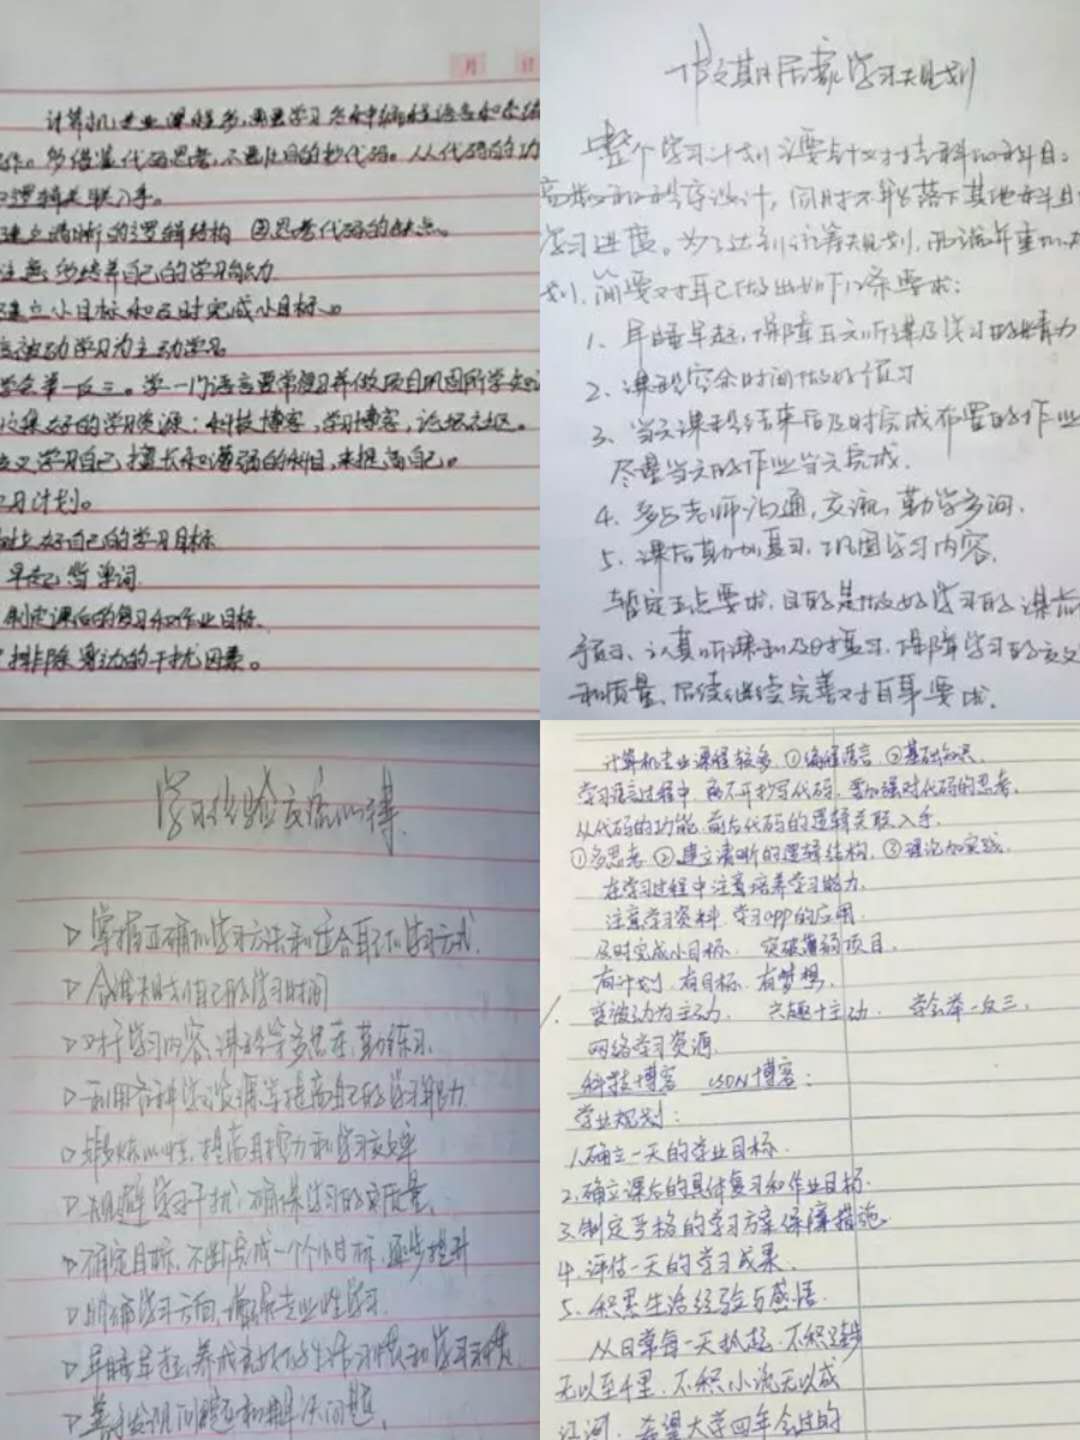 月 日
计算机专业课程多,需要学习各种编程语言和
作。多借鉴代码思考,不要盲目的抄代码。从代码的功
逻辑关联入手。
建立清晰的逻辑结构 ②思考代码的缺点。
注意多培养自己的学习能力
建立小目标和及时完成小目标。
变被动学习为主动学习。
学会举一反三。学一门语言要常复习并做项目巩固所学
收集好的学习资源:科技博客,学习博客,论坛社区。
学习自己擅长和薄弱的科目,来提高自己。
习计划。
好自己的学习目标
早起背单词
制定课后的复习和作业目标.
排除身边的干扰因素。
假期居家学习规划
整个学习计划主要针对专科的科目:
高数和程序设计,同时不能落下其他科目
学习进度。为了达到计算规划,
划,简要对自己做出如下几条要求:
1、早睡早起,保障白天听课及学习的精力
2、课程空余时间做好预习
3、当天课程结束后及时完成布置的作业
尽量当天的作业当天完成.
4、多与老师沟通,交流,勤学多问.
5、课后勤加复习,巩固学习内容.
暂定五点要求,目的是做好学习的课前
预习、认真听课和及时复习,保障学习的
和质量,后续继续完善对自身要求.
学习经验交流心得
掌握正确的学习方法和适合自己的学习方式.
合理规划自己的学习时间
对于学习内容,课程等多思考,勤练习.
利用各种学习资源等提高自己的学习能力
锻炼心性,提高自控力和学习效率
规避学习干扰,确保学习的质量.
确定目标,不断完成一个个小目标,逐步提升
明确学习方向,
早睡早起,养成良好的生活习惯和学习习惯.
善于发现问题和解决问题.
计算机专业课程较多,①编程语言,②基础知识.
学习语言过程中,离不开抄写代码,要加强对代码的思考.
从代码的功能,前后代码的逻辑关联入手.
①多思考 ②建立清晰的逻辑结构,③理论加实践.
在学习过程中注意培养学习能力.
注意学习资料,学习app的应用.
及时完成小目标. 突破薄弱项目.
有计划,有目标,有梦想.
变被动为主动. 兴趣+主动. 学会举一反三.
网络学习资源.
科技博客 CSDN博客:
学业规划:
1.确立一天的学业目标.
2.确立课后的具体复习和作业目标.
3.制定严格的学习方案保障措施.
4.评估一天的学习成果.
5.积累生活经验与感悟.
从日常每一天抓起,不积跬步
无以至千里,不积小流无以成
江河.希望大学四年会过的